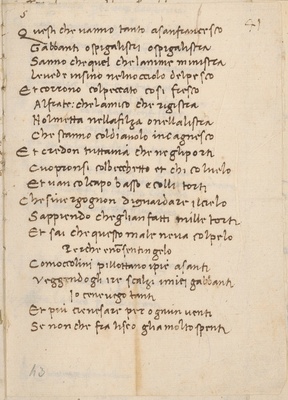 5
41
Questi che vanno tanto a sanfrancesco
Gabbanti ospitalistri ospitalistra
Sanno che quel che lanime ministra
Le vede insino nel nocciolo del pesco
Et corrono col peccato cosi fresco
Al frate: che lamico che rigistra
Nol metta nella filza o nella listra
Che stanno col diavolo in cagnesco
Et credon tuttavia che negli porti
Cuopronsi col becchetto et chi col velo
Et van col capo basso e colli torti
Che si vergognon di guardare il cielo
Sappiendo che gli an fatti mille torti
Et sai che questo male ne va col pelo
Perche e non sentin gelo
Co moccolini pillottano i pie a santi
Veggendogli ire scalzi
gabbanti
Io ce ne vego tanti
Et piu ce nesare per ognun venti
Se non che fra
gli a molto spenti